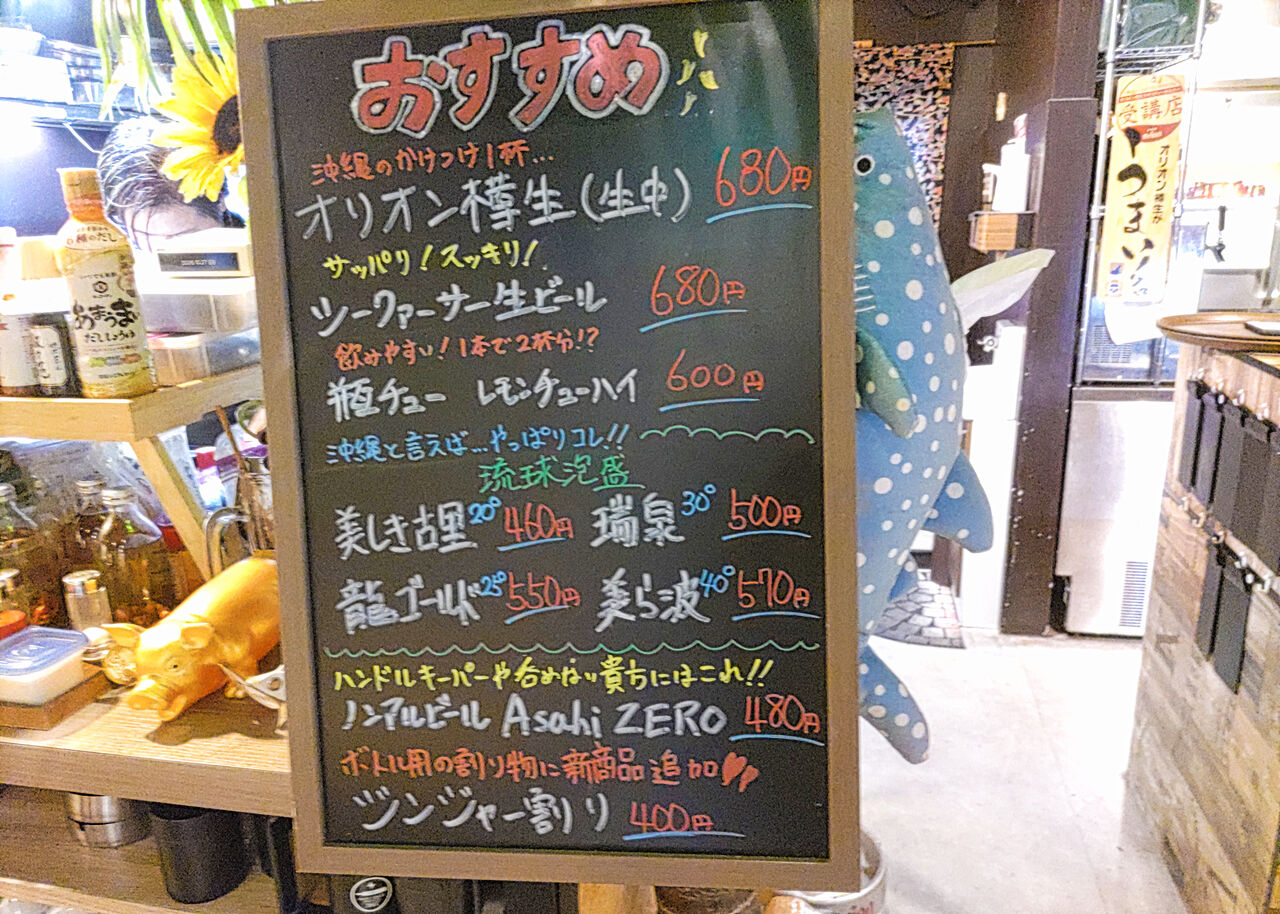 おすすめ
沖縄のかけつけ1杯...
オリオン樽生(生中) 680円
サッパリ!スッキリ!
ツーファーサー生ビール 680円
飲みやすい!1本で2杯分!?
瓶チュー レモンチューハイ 600円
沖縄と言えば...やっぱりコレ!!
琉球泡盛
美しき古里20° 460円 瑞泉30° 500円
龍ゴールド25° 550円 美ら波40° 570円
ハンドルキーパーや呑めない貴方にはこれ!!
ノンアルビール Asahi ZERO 480円
ボトル用の割り物に新商品追加
ジンジャー割り 400円
受講店
オリオン樽生が
うまいゾ
あまうま
だししょうゆ